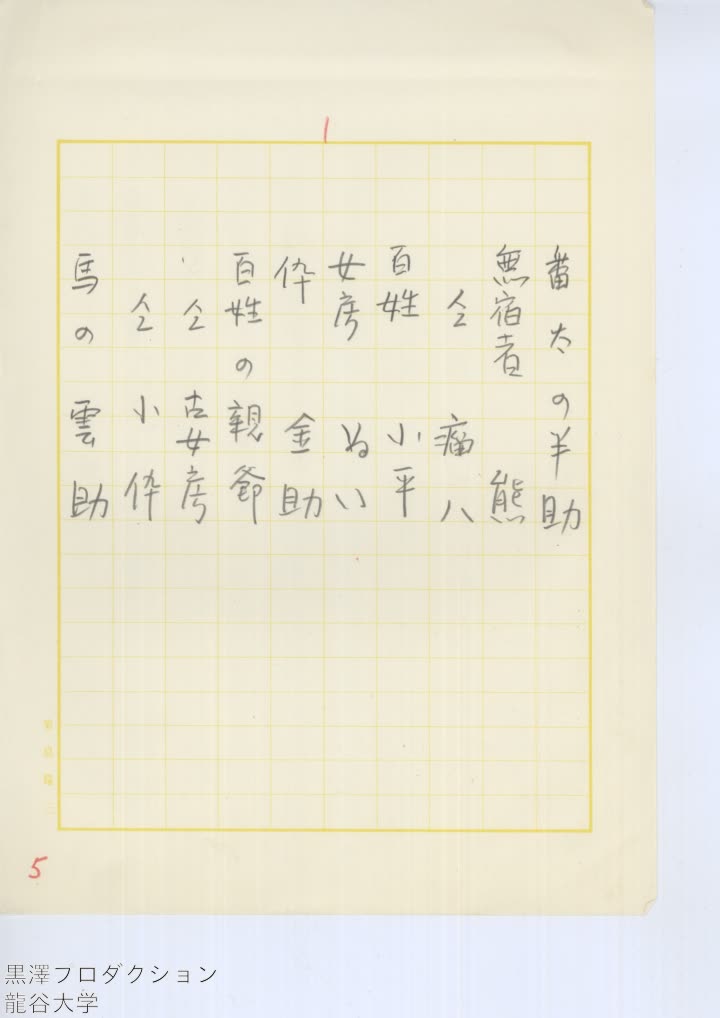 1
番太の半助
無宿者　熊
仝　痛八
百姓　小平
女房　ぬい
伜　金助
百姓の親爺
仝　古女房
仝　小伜
馬の雲助
5
黒澤プロダクション
龍谷大学